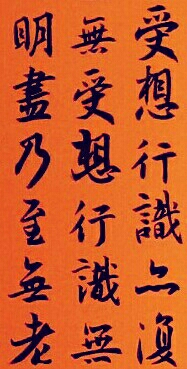 受想行識亦復
無受想行識無
明盡乃至無老